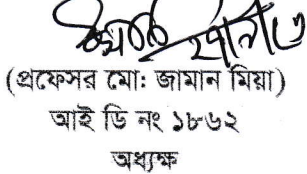 (প্রফেসর মো: জামান মিয়া)
আই ডি নং ১৮৬২
অধ্যক্ষ